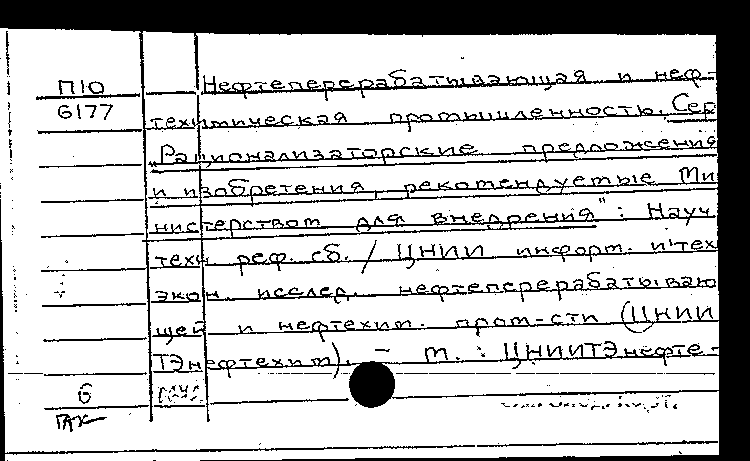 П10
6177
Нефтеперерабатывающая и неф-
техимическая промышленность. Сер
"Рационализаторские предложения
и изобретения, рекомендуемые Ми
нистерством для внедрения": Науч.
техн. реф. сб. / ЦНИИ информ. и тех
экон. исслед. нефтеперерабатываю
щей и нефтехим. пром-сти (ЦНИИ
ТЭнефтехим). – М. : ЦНИИТЭнефте-
6
ГАК